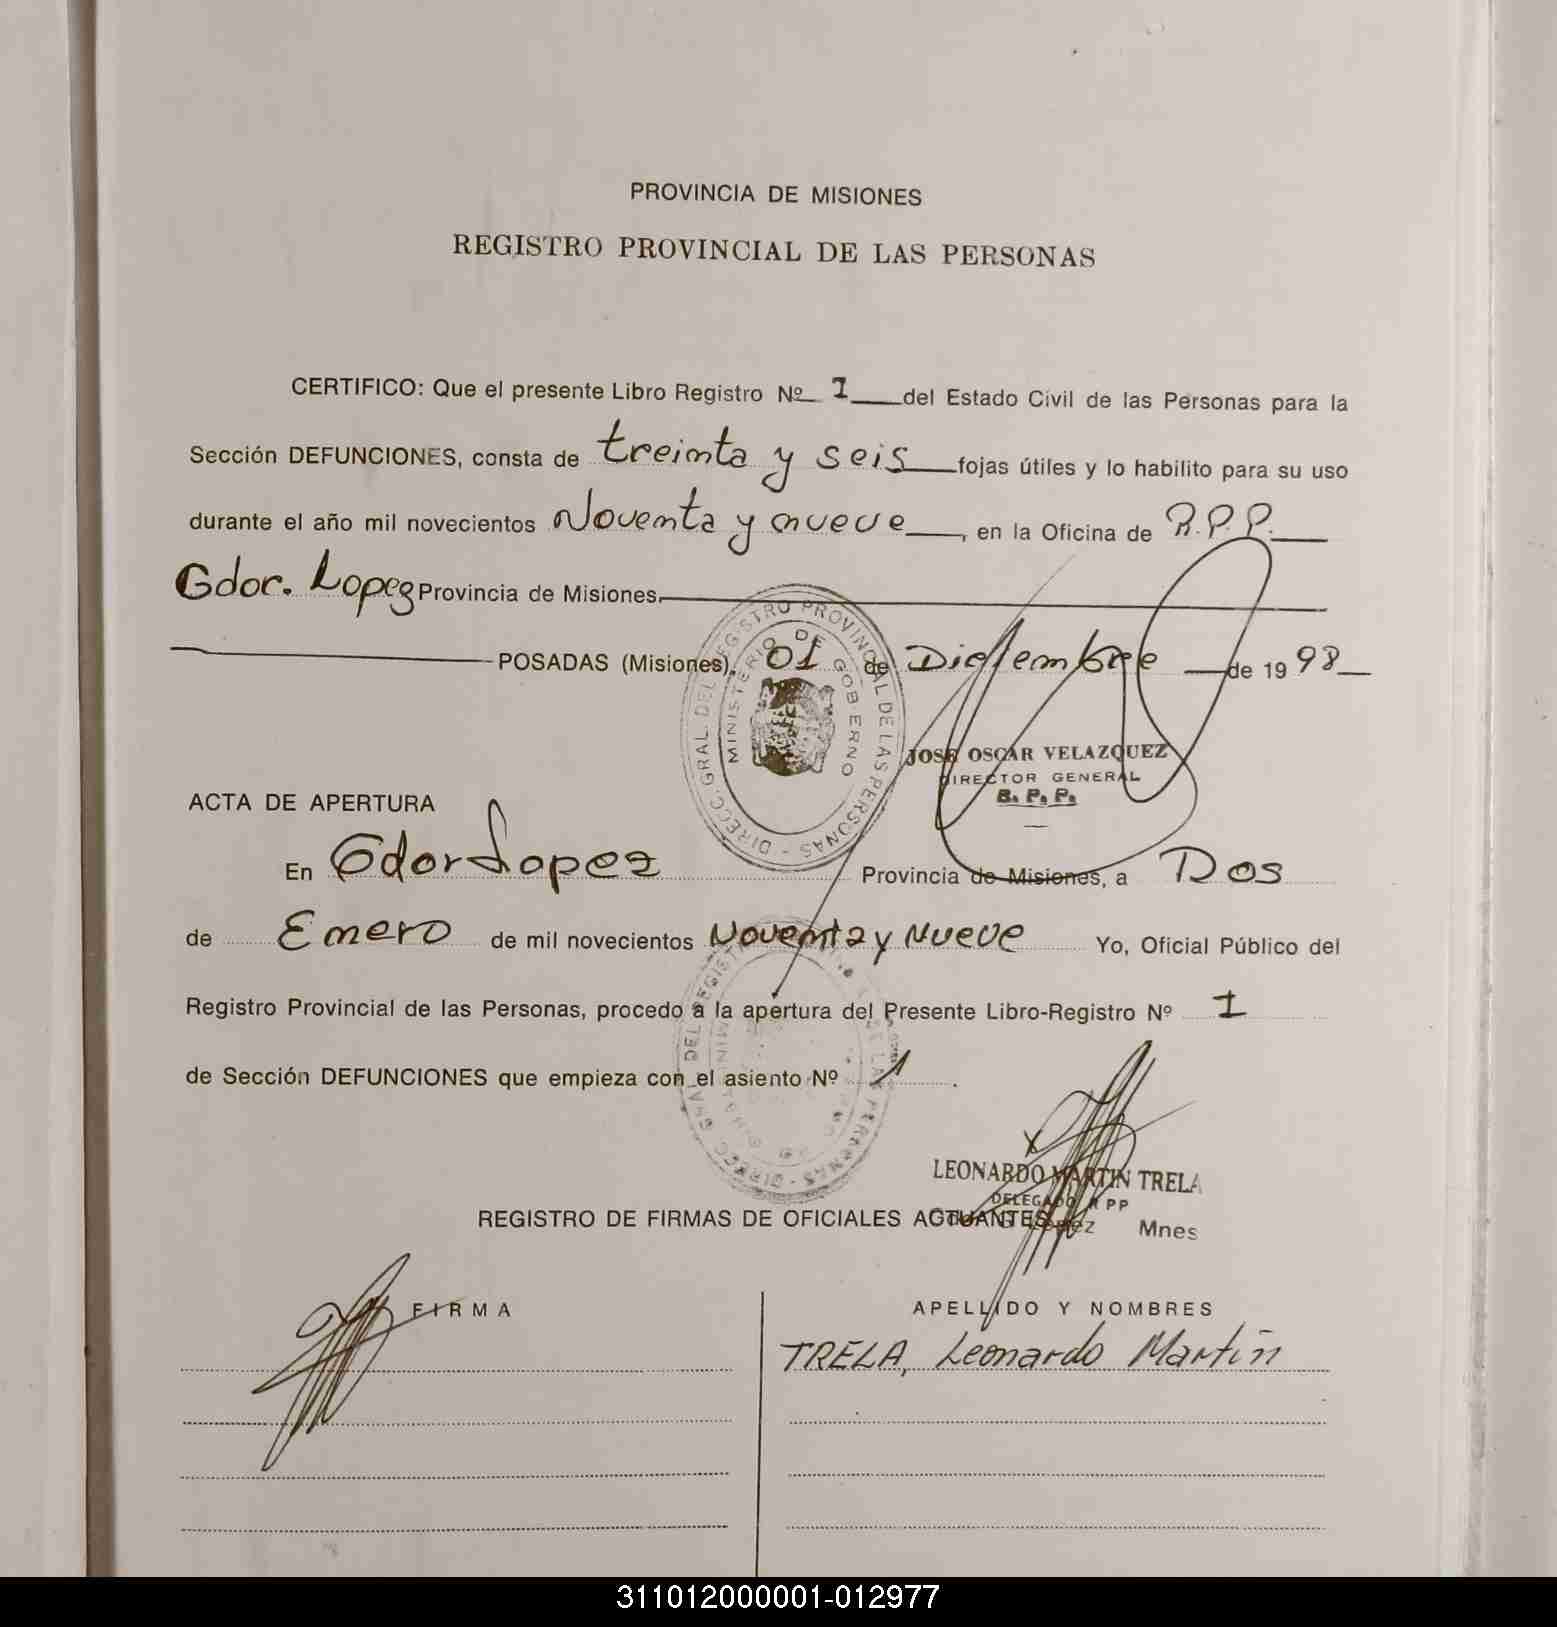 PROVINCIA DE MISIONES
REGISTRO PROVINCIAL DE LAS PERSONAS
CERTIFICO: Que el presente Libro Registro Nº 1 del Estado Civil de las Personas para la
Sección DEFUNCIONES, consta de treinta y seis fojas útiles y lo habilito para su uso
durante el año mil novecientos Noventa y nueve, en la Oficina de R.P.P.
Gdor. Lopez Provincia de Misiones.
POSADAS (Misiones), 01 de Diciembre de 1998
DIRECC. GRAL. DEL REGISTRO PROVINCIAL DE LAS PERSONAS -
MINISTERIO DE GOBIERNO
JOSE OSCAR VELAZQUEZ
DIRECTOR GENERAL
R. P. P.
ACTA DE APERTURA
En Gdor Lopez Provincia de Misiones, a Dos
de Enero de mil novecientos Noventa y Nueve Yo, Oficial Público del
Registro Provincial de las Personas, procedo a la apertura del Presente Libro-Registro Nº 1
de Sección DEFUNCIONES que empieza con el asiento Nº 1.
LEONARDO MARTIN TRELA
DELEGADO R PP
Lopez Mnes
REGISTRO DE FIRMAS DE OFICIALES ACTUANTES
FIRMA
APELLIDO Y NOMBRES
TRELA, Leonardo Martín
311012000001-012977